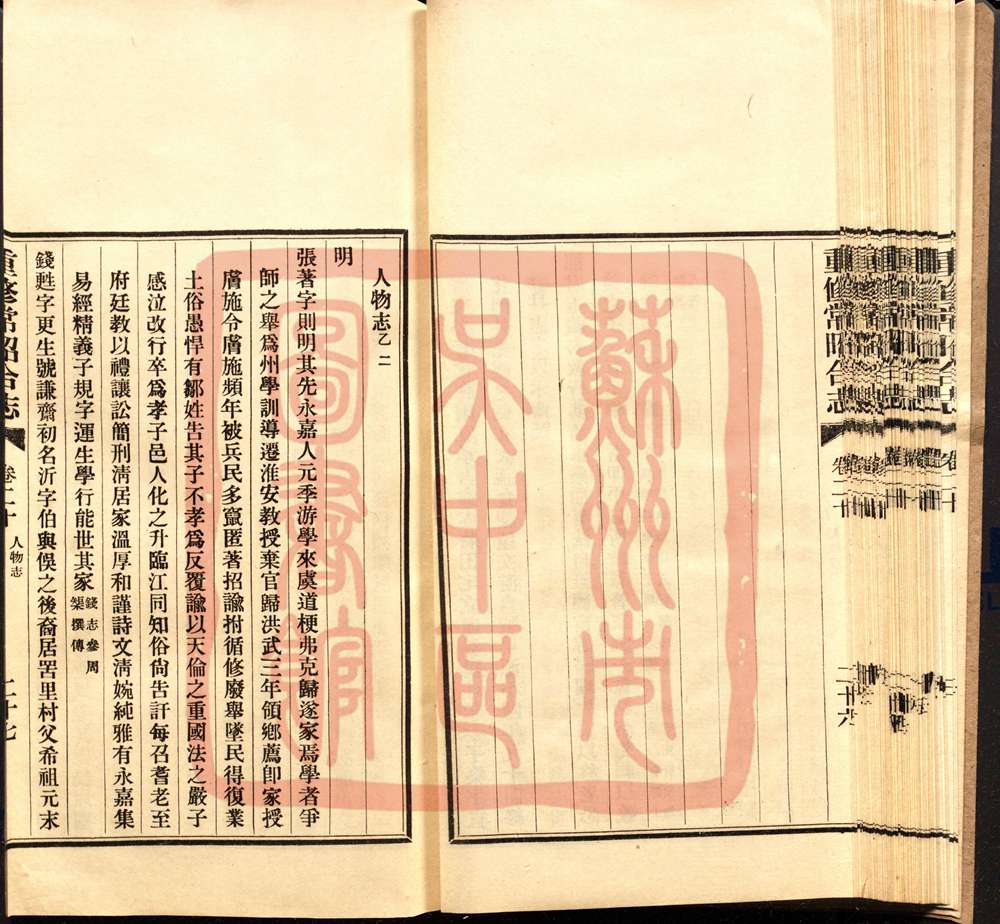 重修常昭合志
卷二十
二十六
人物志乙二
明
張著字則明其先永嘉人元季游學來虞道梗弗克歸遂家焉學者爭
師之舉爲州學訓導遷淮安教授棄官歸洪武三年領鄉薦卽家授
膚施令膚施頻年被兵民多竄匿著招諭拊循修廢舉墜民得復業
土俗愚悍有鄒姓告其子不孝爲反覆諭以天倫之重國法之嚴子
感泣改行卒爲孝子邑人化之升臨江同知俗尙告訐每召耆老至
府廷敎以禮讓訟簡刑淸居家溫厚和謹詩文淸婉純雅有永嘉集
易經精義子規字運生學行能世其家錢志參周
榘撰傳
錢甦字更生號謙齋初名沂字伯與俁之後裔居罟里村父希祖元末
重修常昭合志
卷二十
人物志
二十七
蘇州市
吴中區
圖書館